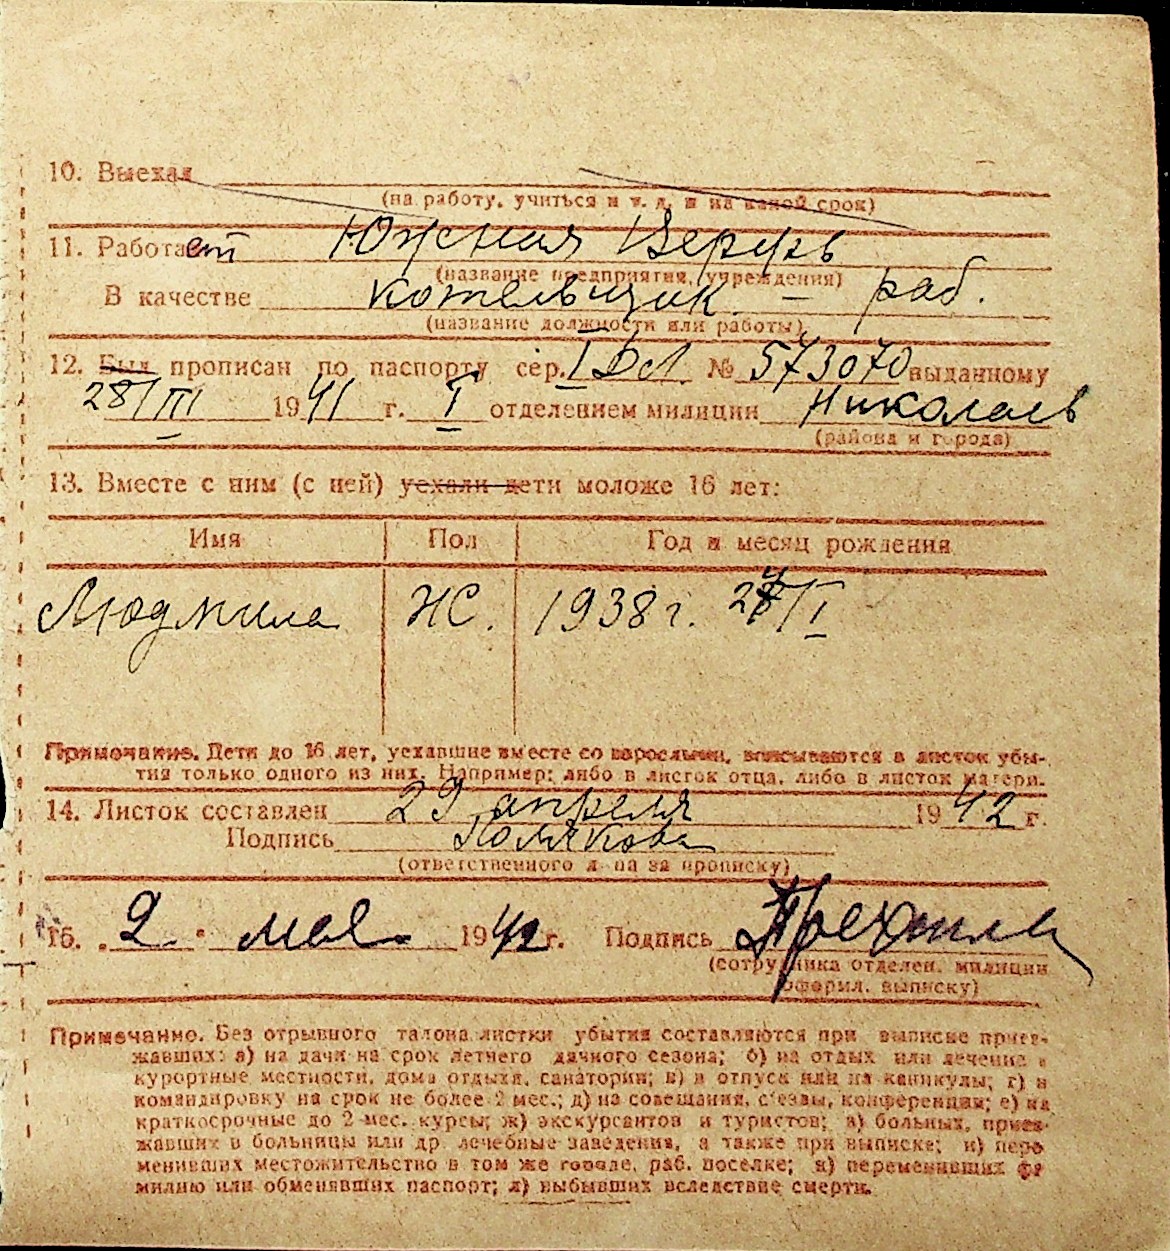 10. Выехал
(на работу, учиться и т. д. и на какой срок)
11. Работает Южная Верфь
(название предприятия, учреждения)
В качестве котельщик. – раб.
(название должности или работы)
12. Был прописан по паспорту сер. I ДЛ № 573070 выданному
28/III 1941 г. I отделением милиции Николаев
(района и города)
13. Вместе с ним (с ней) уехали дети моложе 16 лет:
Имя Пол Год и месяц рождения
Людмила Ж. 1938 г. /I
Примечание. Дети до 16 лет, уехавшие вместе со взрослыми, вписываются в листок убы-
тия только одного из них. Например: либо в листок отца, либо в листок матери.
14. Листок составлен 29 апреля 1942 г.
Подпись Полякова
(ответственного л-ца за прописку)
15. „2" мая 1942 г. Подпись
(сотрудника отделен. милиции
оформл. выписку)
Примечание. Без отрывного талона листки убытия составляются при выписке приез-
жавших: а) на дачи на срок летнего дачного сезона; б) на отдых или лечение в
курортные местности, дома отдыха, санатории; в) в отпуск или на каникулы; г) в
командировку на срок не более 2 мес.; д) на совещания, с'езды, конференции; е) на
краткосрочные до 2 мес. курсы; ж) экскурсантов и туристов; з) больных, приез-
жавших в больницы или др. лечебные заведения, а также при выписке; и) пере
менивших местожительство в том же городе, раб. поселке; к) переменивших фа
милию или обменявших паспорт; л) выбывших вследствие смерти.